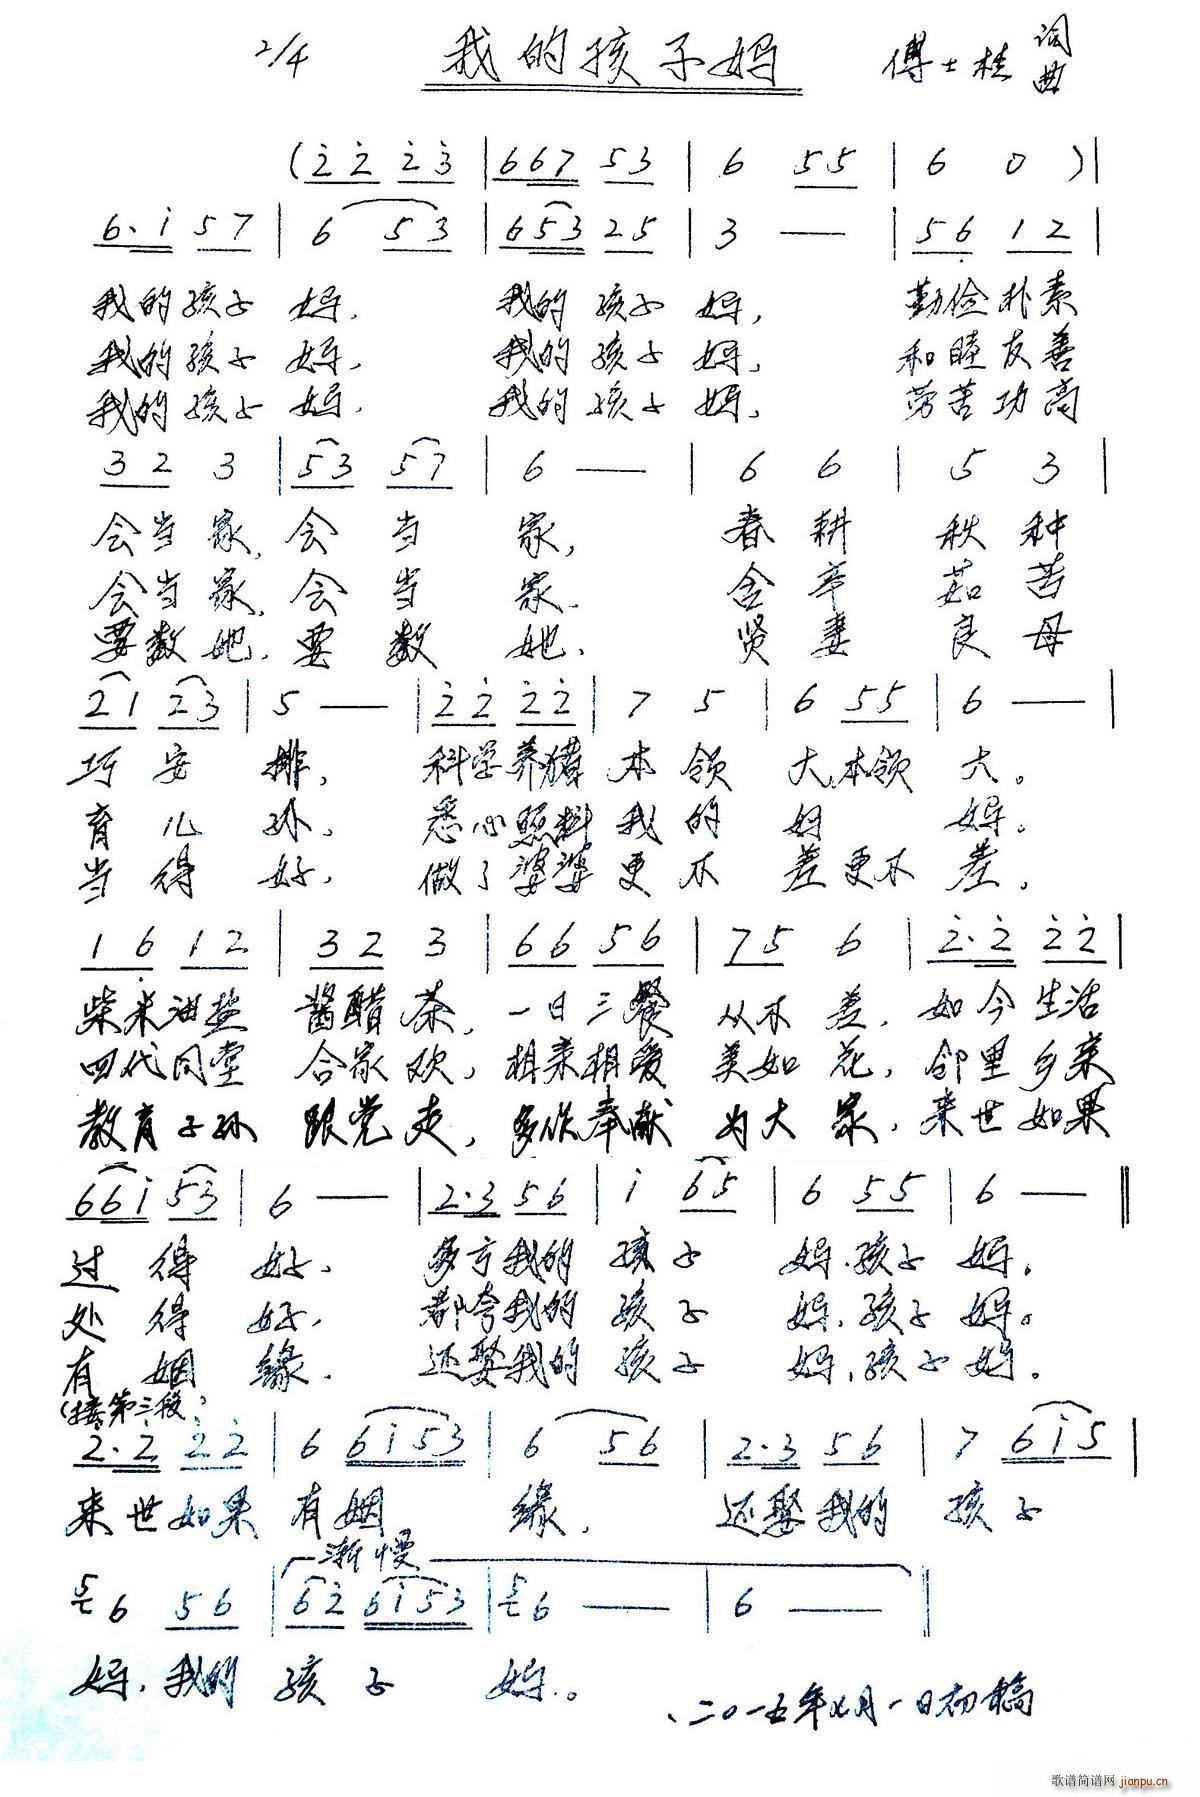 2/4 我的孩子妈 傅士桂 词曲
(2̇ 2̇ 2̇ 3̇ | 6 6 7 5 3 | 6 5 5 | 6 0 ) |
6. i̇ 5 7 | 6 5 3 | 6 5 3 2 5 | 3 — | 5 6̣ 1 2 |
我的孩子妈, 我的孩子妈, 勤俭朴素
我的孩子妈, 我的孩子妈, 和睦友善
我的孩子妈, 我的孩子妈, 劳苦功高
3 2 3 | 5 3 5 7 | 6 — | 6 6 | 5 3 |
会当家, 会当家, 春耕秋种
会当家, 会当家, 含辛茹苦
要数她, 要数她, 贤妻良母
2 1 2 3 | 5 — | 2̇ 2̇ 2̇ 2̇ | 7 5 | 6 5 5 | 6 — |
巧安排, 科学养猪本领大本领大。
育儿孙, 悉心照料我的妈妈。
当得好, 做了婆婆更不差更不差。
1 6̣ 1 2 | 3 2 3 | 6 6 5 6 | 7 5 6 | 2̇. 2̇ 2̇ 2̇ |
柴米油盐酱醋茶, 一日三餐从不差, 如今生活
四代同堂合家欢, 相亲相爱美如花, 邻里乡亲
教育子孙跟党走, 多做奉献为大家, 来世如果
6 6 i̇ 5 3 | 6 — | 2. 3 5 6 | i̇ 6 5 | 6 5 5 | 6 — ‖
过得好, 多亏我的孩子妈, 孩子妈。
处得好, 都夸我的孩子妈, 孩子妈。
有姻缘, 还娶我的孩子妈, 孩子妈。
(接第三段)
2̇. 2̇ 2̇ 2̇ | 6 6 i̇ 5 3 | 6 5 6 | 2. 3 5 6 | 7 6 i̇ 5 |
来世如果有姻缘, 还娶我的孩子
渐慢
5 6 5 6 | 6 2̇ 6 i̇ 5 3 | 5 6 — | 6 — ‖
妈, 我的孩子妈。
二〇一五年七月一日初稿
歌谱简谱网 jianpu.cn